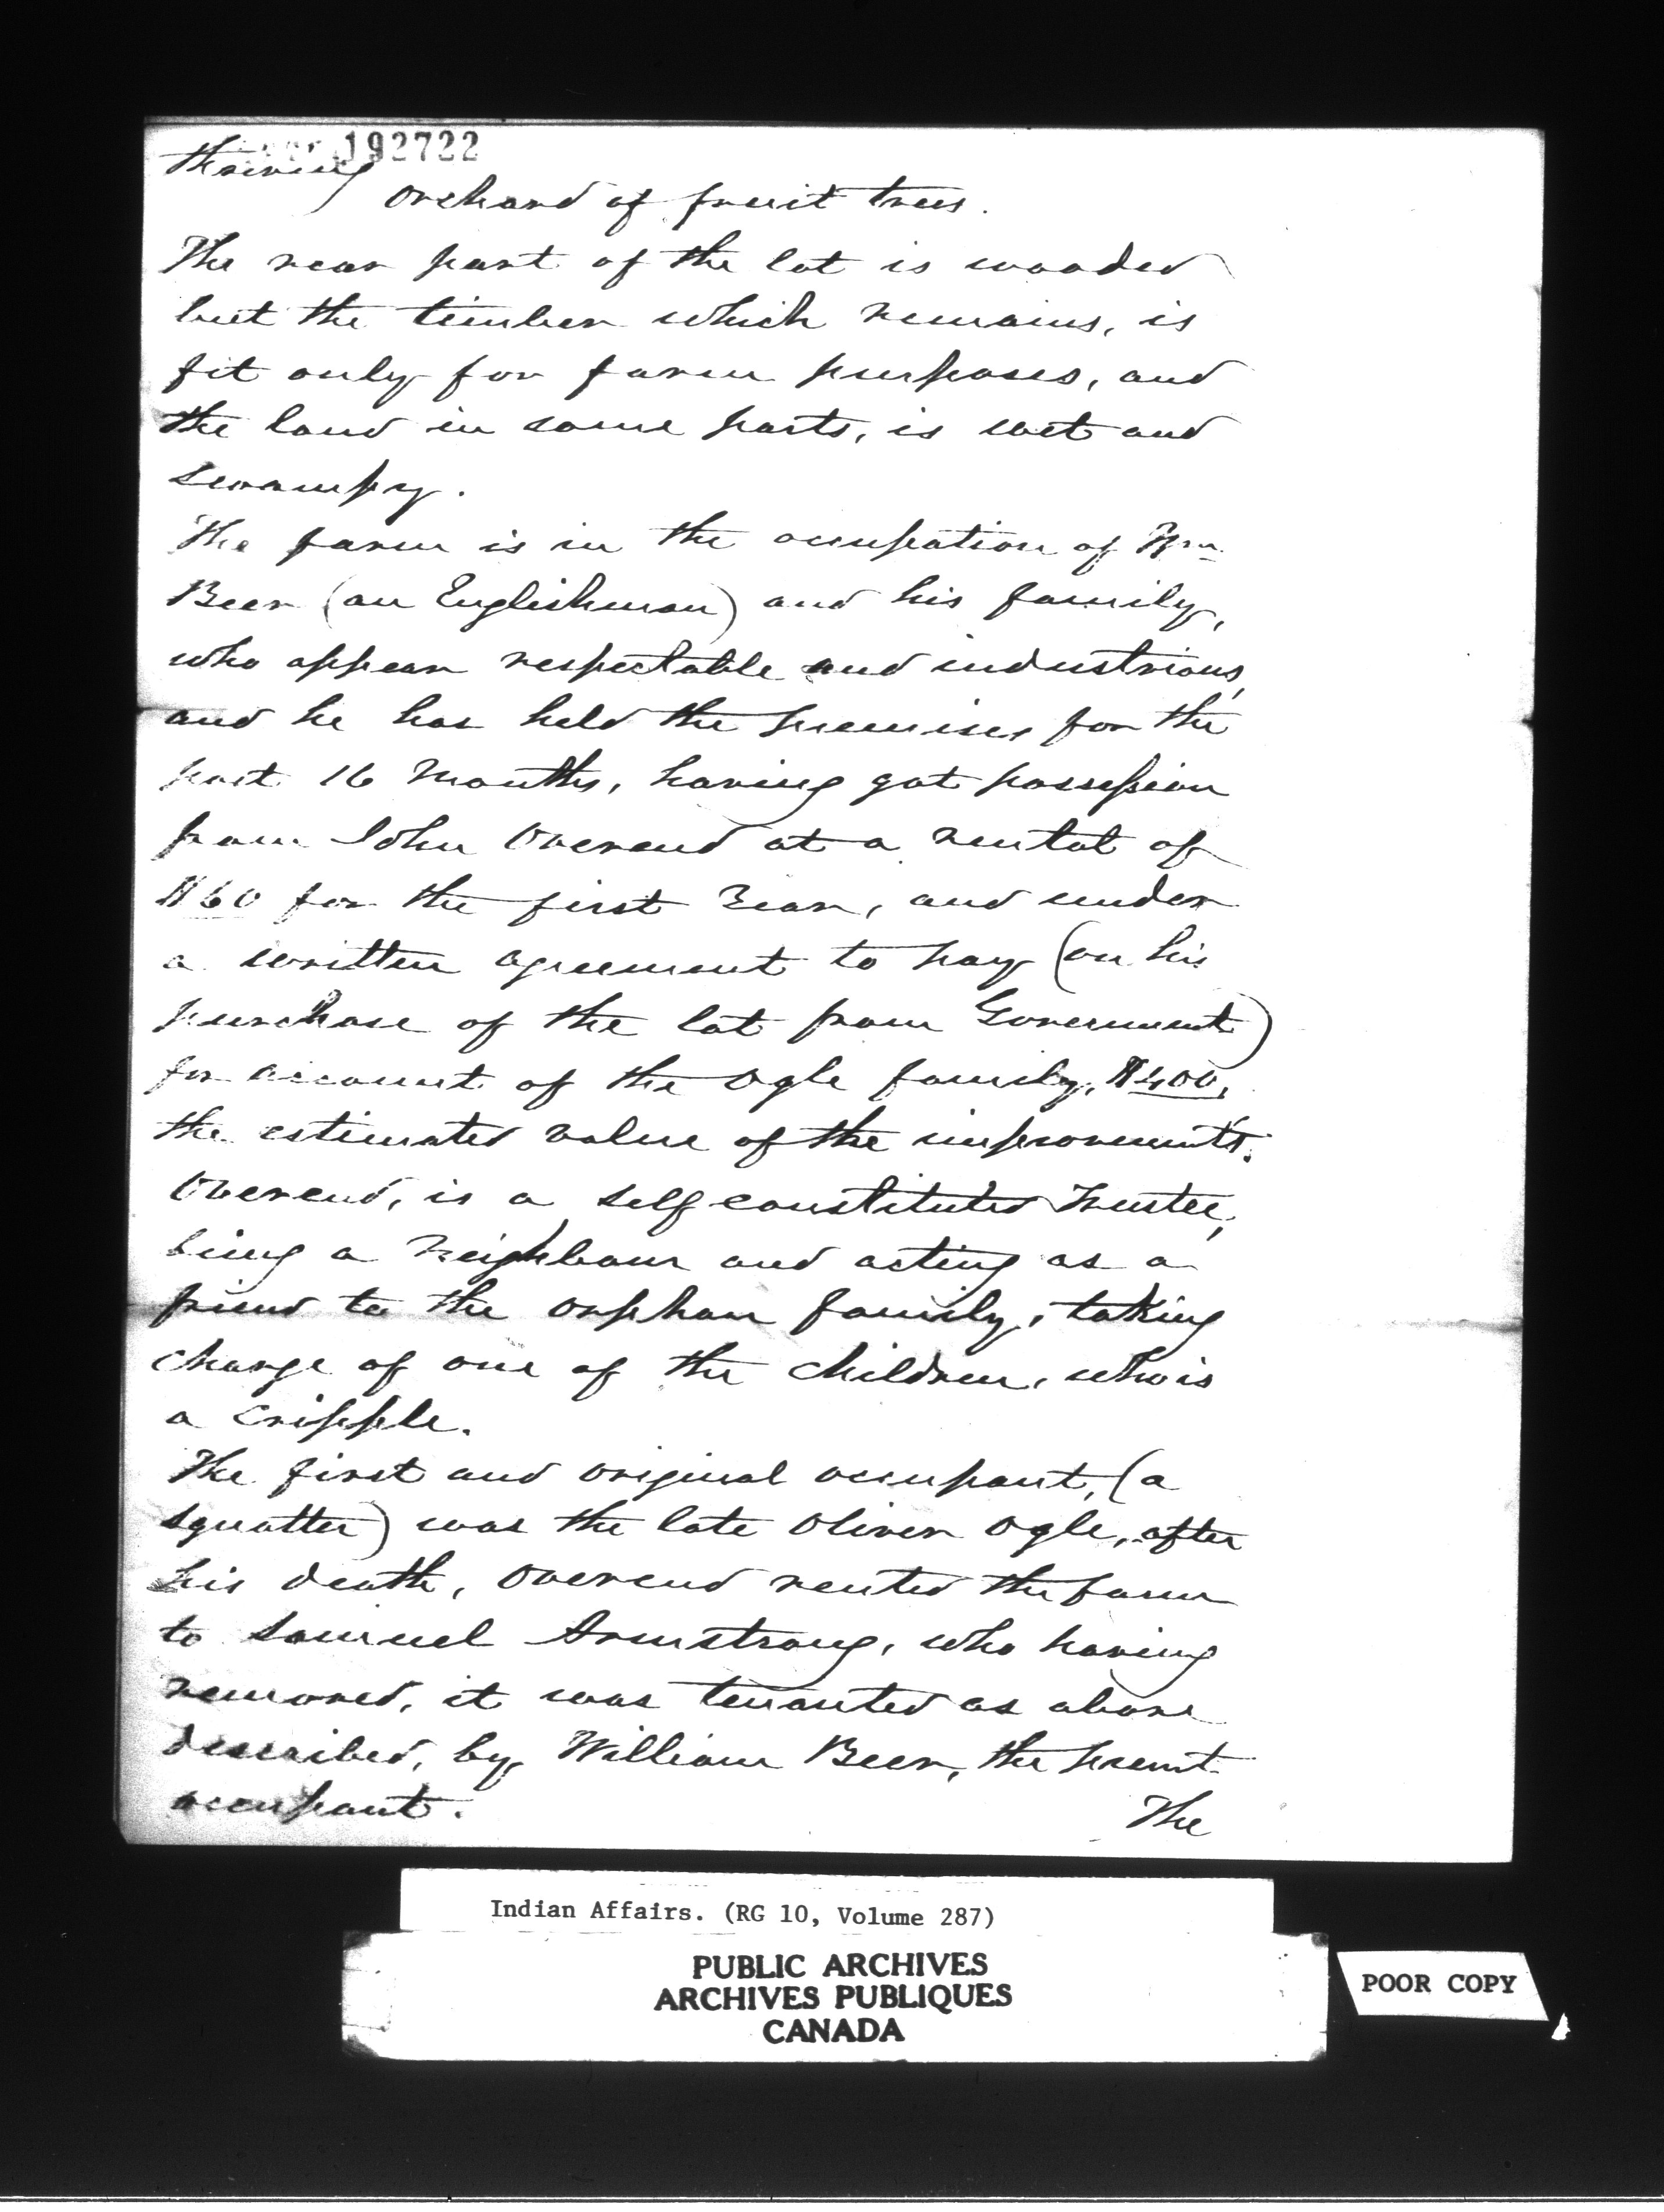 192722
thriving
orchard of fruit trees.
The rear part of the lot is wooded
but the timber which remains, is
fit only for farm purposes, and
the land in some parts, is wet and
swampy.
The farm is in the occupation of Wm
Beer (an Englishman) and his family,
who appear respectable and industrious,
and he has held the premises for the
past 16 Months, having got possession
from John Overend at a rental of
$60 for the first Year, and under
a written agreement to pay (on his
purchase of the lot from Government)
for account of the Ogle family, $400,
the estimated value of the improvements.
Overend, is a self constituted Trustee,
being a Neighbour and acting as a
friend to the orphan family, taking
charge of one of the children, who is
a cripple.
The first and original occupant, (a
squatter) was the late Oliver Ogle, after
his death, Overend rented the farm
to Samuel Armstrong, who having
removed, it was tenanted as above
described, by William Beer, the present
occupant.
The
Indian Affairs. (RG 10, Volume 287)
PUBLIC ARCHIVES
ARCHIVES PUBLIQUES
CANADA
POOR COPY